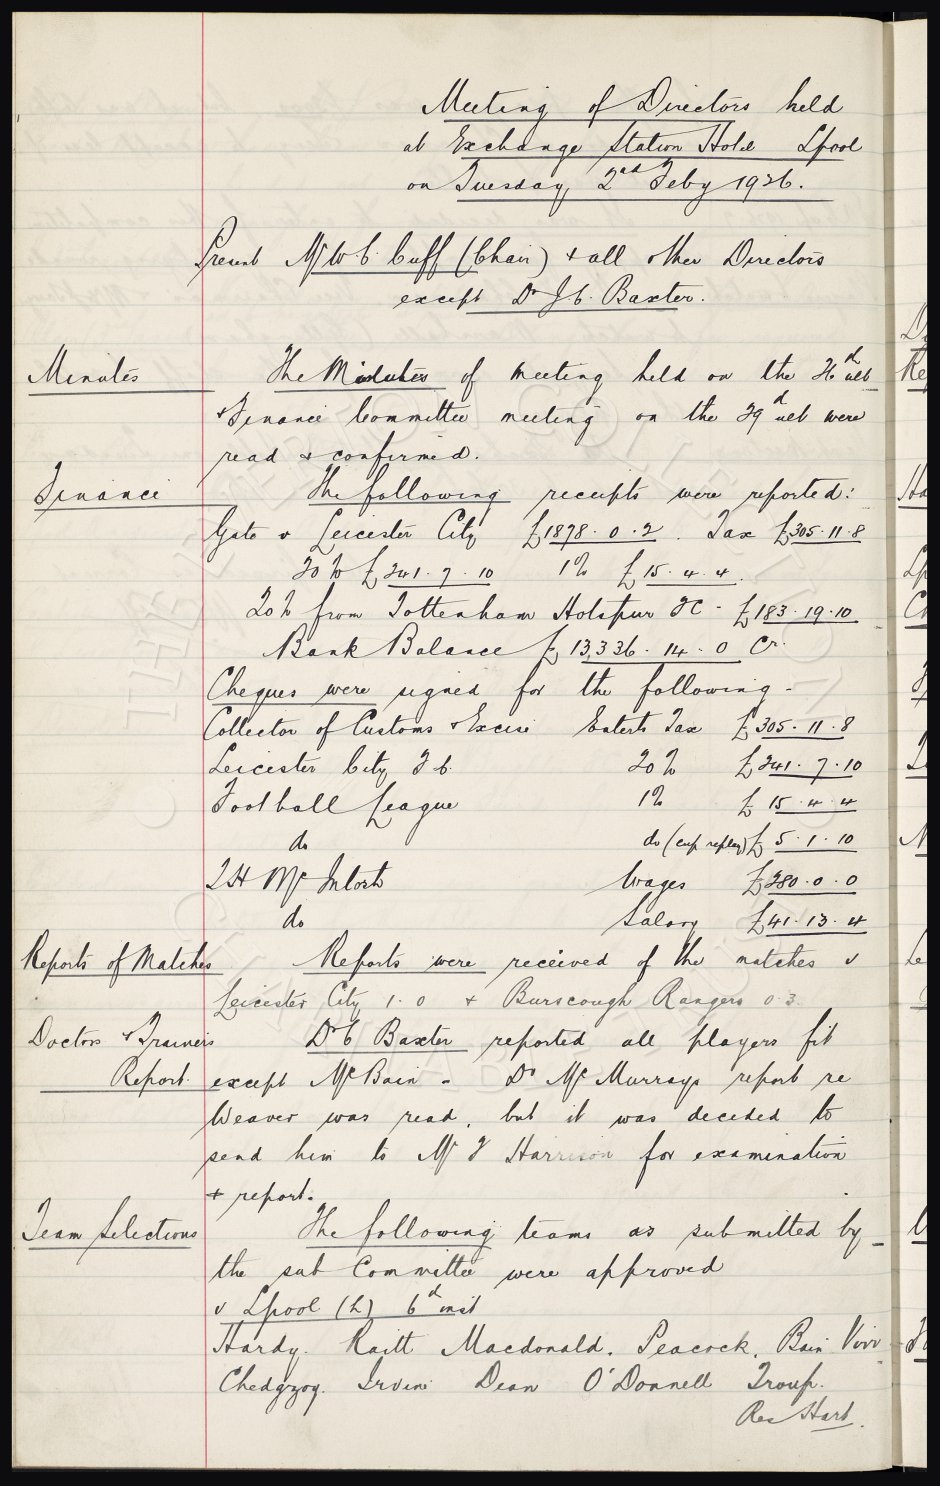 Meeting of Directors held
at Exchange Station Hotel Lpool
on Tuesday, 2nd Feby 1926.
Present Mr W.C. Cuff (Chair) + all other Directors
except Dr J.C. Baxter.
Minutes The Minutes of meeting held on the 26d ult
+ Finance Committee meeting on the 29d ult were
read + confirmed.
Finance The following receipts were reported:
Gate v Leicester City £1878.0.2. Tax £305.11.8
20% £241.7.10 1% £15.4.4.
20% from Tottenham Hotspur FC - £183.19.10
Bank Balance £13,336.14.0 Cr.
Cheques were signed for the following -
Collector of Customs + Excise Enterts Tax £305.11.8
Leicester City F.C. 20% £241.7.10
Football League 1% £15.4.4
do do (cup replay) £5.1.10
T H McIntosh Wages £280.0.0
do Salary £41.13.4
Reports of Matches Reports were received of the matches v
Leicester City 1.0 + Burscough Rangers 0.3.
Doctors + Trainers Dr C Baxter reported all players fit
Report. except McBain - Dr McMurrays report re
Weaver was read, but it was decided to
send him to Mr F Harrison for examination
+ report.
Team Selections The following teams as submitted by
the sub Committee were approved
v Lpool (h) 6d inst
Hardy. Raitt Macdonald. Peacock. Bain Virr
Chedgzoy. Irvine Dean O'Donnell Troup.
Res Hart.